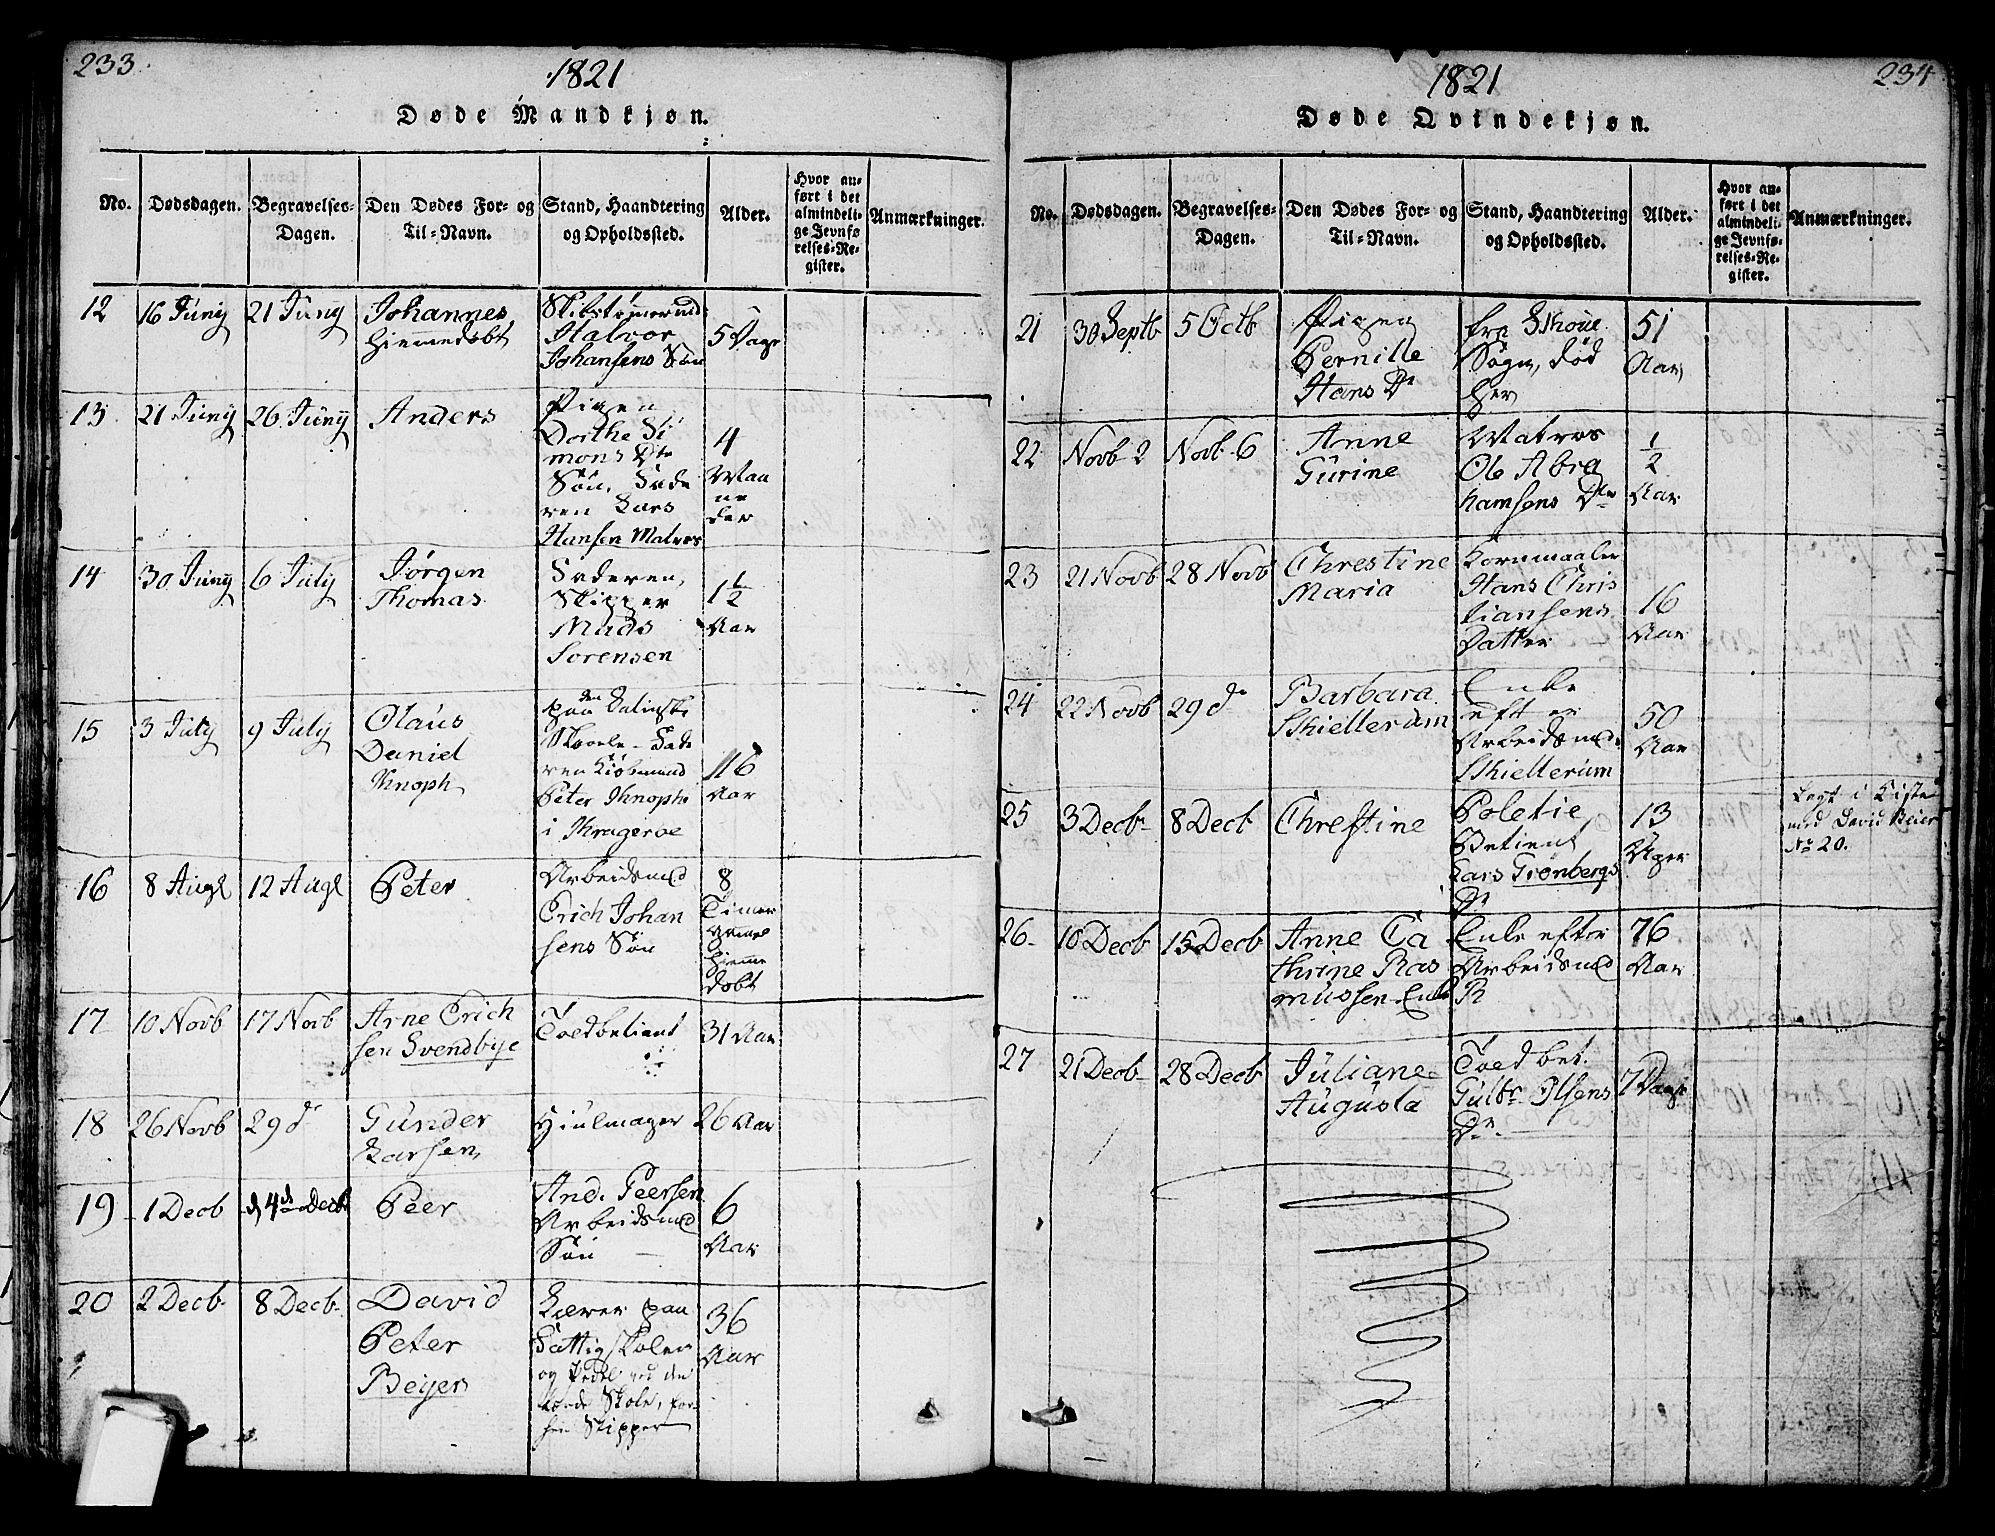 233
1821
Døde Mandkjøn.
No.
Dødsdagen.
Begravelses-
Dagen.
Den Dødes For- og
Til-Navn.
Stand, Haandtering
og Opholdssted.
Alder.
Hvor an-
ført i det
almindeli-
ge Jevnfø-
relses-Re-
gister.
Anmærkninger.
12
16 Juny
21 Juny
Johannes
Hiemedøbt
Skibstømermd
Halvor
Johansens Søn
5 Dage
13
21 Juny
26 Juny
Anders
Pigen
Dorthe Si
mons Dtr
Søn, Fade
ren Lars
Hansen Matros
4
Maa
ne
der
14
30 Juny
6 July
Jørgen
Thomas
Faderen,
Skipper
Mads
Sorensen
1 1/2
Aar
15
3 July
9 July
Olaus
Daniel
Knoph
paa den Latinske
Skoele - Fade
ren Kiøbmand
Peter Knoph
i Krageroe
16
Aar
16
8 Augl
12 Augl
Peter
Arbeidsmd
Erich Johan
sens Søn
8
Timer
Hieme
døbt
17
10 Novb
17 Novb
Arne Erich
sen Svendbye
Toedbetient
31 Aar
18
26 Novb
29 d
Gunder
Larsen
Hiulmager
26 Aar
19
1 Decb
d 4de Decb
Peer
And. Peersen
Arbeidsmd
Søn
6
Aar
20
2 Decb
8 Decb
David
Peter
Beyer
Lærer paa
Fattigskolen
og Pedel ved den
Lærde Skole, for-
hen Skipper
36
Aar
1821
234
Døde Qvindekjøn.
No.
Dødsdagen.
Begravelses-
Dagen.
Den Dødes For- og
Til-Navn.
Stand, Haandtering
og Opholdssted.
Alder.
Hvor an-
ført i det
almindeli-
ge Jevnfø-
relses-Re-
gister.
Anmærkninger.
21
30 Septb
5 Octb
Pigen
Pernille
Hans Dr
fra Skoue
Sogn, død
her
51
Aar
22
Novb 2
Novb 6
Anne
Gurine
Matros
Ole Abra
hamsens Dtr
1/2
Aar
23
21 Novb
28 Novb
Chrestine
Maria
Kornmaaler
Hans Chris
tiansens
Datter
16
Aar
24
22 Novb
29 d
Barbara
Skiellerum
Enke
efter
Arbeidsmd
Skiellerum
50
Aar
25
3 Decb
8 Decb
Chrestine
Poletie
Betient
Lars Grønbergs
Dr
13
Uger
Lagt i Kiste
med David Beier
No 20.
26
10 Decb
15 Decb
Anne Ca
thrine Ras
mussen Enke
Enke efter
Arbeidsmd
R
76
Aar
27
21 Decb
28 Decb
Juliane
Augusta
Toedbet.
Gulbr Olsens
Dr
7 Dage